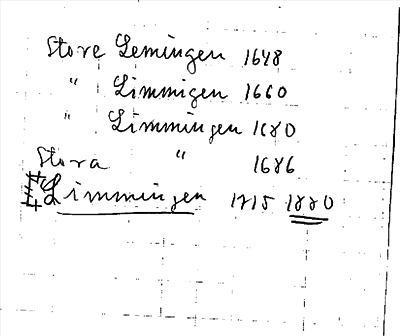 Store Lemingen 1648
" Limmigen 1660
" Limmingen 1680
Stora " 1686
Limmingen 1715 1880